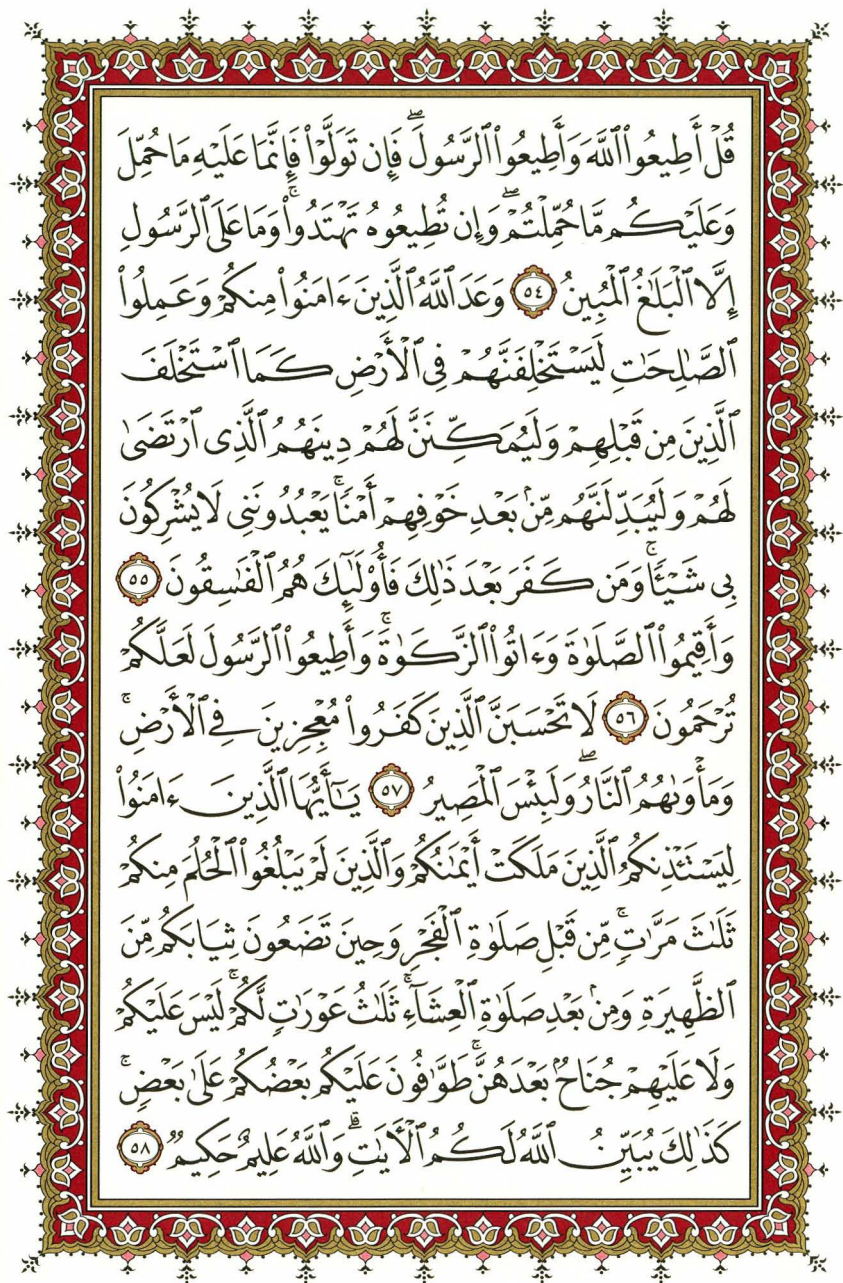 قُلْ أَطِيعُواْ ٱللَّهَ وَأَطِيعُواْ ٱلرَّسُولَۖ فَإِن تَوَلَّوْاْ فَإِنَّمَا عَلَيْهِ مَا حُمِّلَ
وَعَلَيْكُم مَّا حُمِّلْتُمْۖ وَإِن تُطِيعُوهُ تَهْتَدُواْۚ وَمَا عَلَى ٱلرَّسُولِ
إِلَّا ٱلْبَلَٰغُ ٱلْمُبِينُ ٥٤ وَعَدَ ٱللَّهُ ٱلَّذِينَ ءَامَنُواْ مِنكُمْ وَعَمِلُواْ
ٱلصَّٰلِحَٰتِ لَيَسْتَخْلِفَنَّهُمْ فِى ٱلْأَرْضِ كَمَا ٱسْتَخْلَفَ
ٱلَّذِينَ مِن قَبْلِهِمْ وَلَيُمَكِّنَنَّ لَهُمْ دِينَهُمُ ٱلَّذِى ٱرْتَضَىٰ
لَهُمْ وَلَيُبَدِّلَنَّهُم مِّنۢ بَعْدِ خَوْفِهِمْ أَمْنًاۚ يَعْبُدُونَنِى لَا يُشْرِكُونَ
بِى شَيْـًٔاۚ وَمَن كَفَرَ بَعْدَ ذَٰلِكَ فَأُوْلَٰٓئِكَ هُمُ ٱلْفَٰسِقُونَ ٥٥
وَأَقِيمُواْ ٱلصَّلَوٰةَ وَءَاتُواْ ٱلزَّكَوٰةَۚ وَأَطِيعُواْ ٱلرَّسُولَ لَعَلَّكُمْ
تُرْحَمُونَ ٥٦ لَا تَحْسَبَنَّ ٱلَّذِينَ كَفَرُواْ مُعْجِزِينَ فِى ٱلْأَرْضِۚ
وَمَأْوَىٰهُمُ ٱلنَّارُۖ وَلَبِئْسَ ٱلْمَصِيرُ ٥٧ يَٰٓأَيُّهَا ٱلَّذِينَ ءَامَنُواْ
لِيَسْتَـْٔذِنكُمُ ٱلَّذِينَ مَلَكَتْ أَيْمَٰنُكُمْ وَٱلَّذِينَ لَمْ يَبْلُغُواْ ٱلْحُلُمَ مِنكُمْ
ثَلَٰثَ مَرَّٰتٍۚ مِّن قَبْلِ صَلَوٰةِ ٱلْفَجْرِ وَحِينَ تَضَعُونَ ثِيَابَكُم مِّنَ
ٱلظَّهِيرَةِ وَمِنۢ بَعْدِ صَلَوٰةِ ٱلْعِشَآءِۚ ثَلَٰثُ عَوْرَٰتٍ لَّكُمْۚ لَيْسَ عَلَيْكُمْ
وَلَا عَلَيْهِمْ جُنَاحٌۢ بَعْدَهُنَّۚ طَوَّٰفُونَ عَلَيْكُم بَعْضُكُمْ عَلَىٰ بَعْضٍۚ
كَذَٰلِكَ يُبَيِّنُ ٱللَّهُ لَكُمُ ٱلْأَيَٰتِۗ وَٱللَّهُ عَلِيمٌ حَكِيمٌ ٥٨